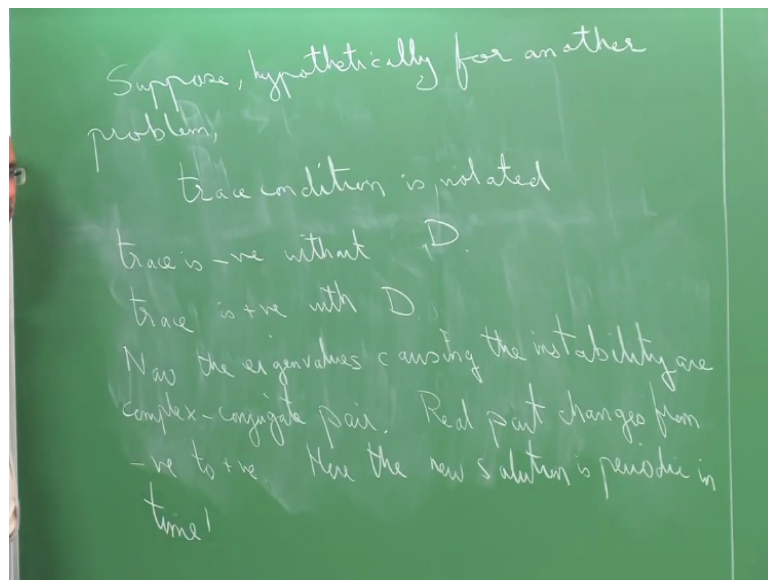 Suppose, hypothetically for another
problem,
trace condition is violated
trace is -ve without D.
trace is +ve with D.
Now the eigenvalues causing the instability are
complex-conjugate pair. Real part changes from
-ve to +ve. Here the new solution is periodic in
time!